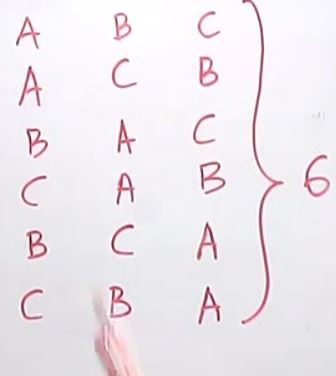 A B C
A C B
B A C
C A B } 6
B C A
C B A